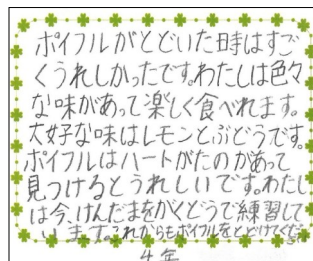 ポイフルがとどいた時はすご
くうれしかったです。わたしは色々
な味があって楽しく食べれます。
大好な味はレモンとぶどうです。
ポイフルはハートがたのがあって
見つけるとうれしいです。わたし
は今、けんだまをがくどうで練習して
います。これからもポイフルをとどけてくだ
4年